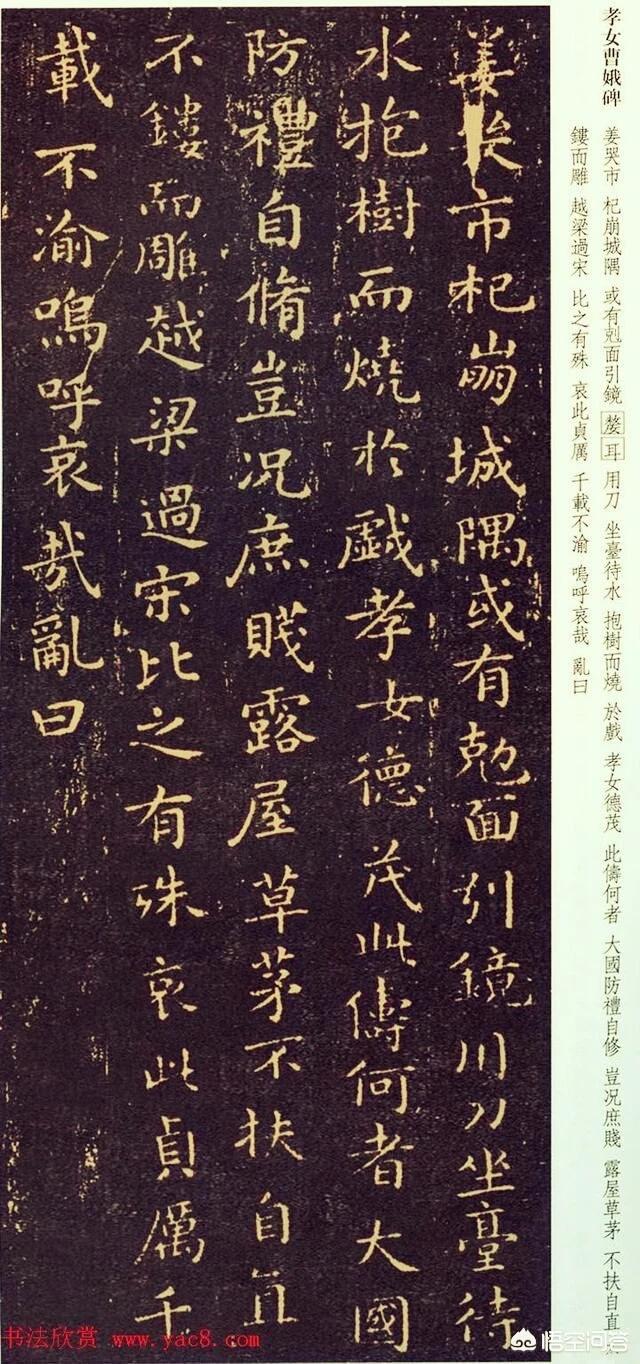 孝女曹娥碑
姜哭市 杞崩城隅 或有剋面引鏡 耳 用刀 坐臺待水 抱樹而燒 於戲 孝女德茂 此儔何者 大國防禮自修 豈況庶賤 露屋草茅 不扶自直
鏤而雕 越梁過宋 比之有殊 哀此貞厲 千載不渝 嗚呼哀哉 亂曰
姜哭市杞崩城隅或有剋面引鏡用刀坐臺待
水抱樹而燒於戲孝女德茂此儔何者大國
防禮自脩豈况庶賤露屋草茅不扶自直
不鏤而雕越梁過宋比之有殊哀此貞厲千
載不渝嗚呼哀哉亂曰
书法欣赏 www.yac8.com
悟空问答